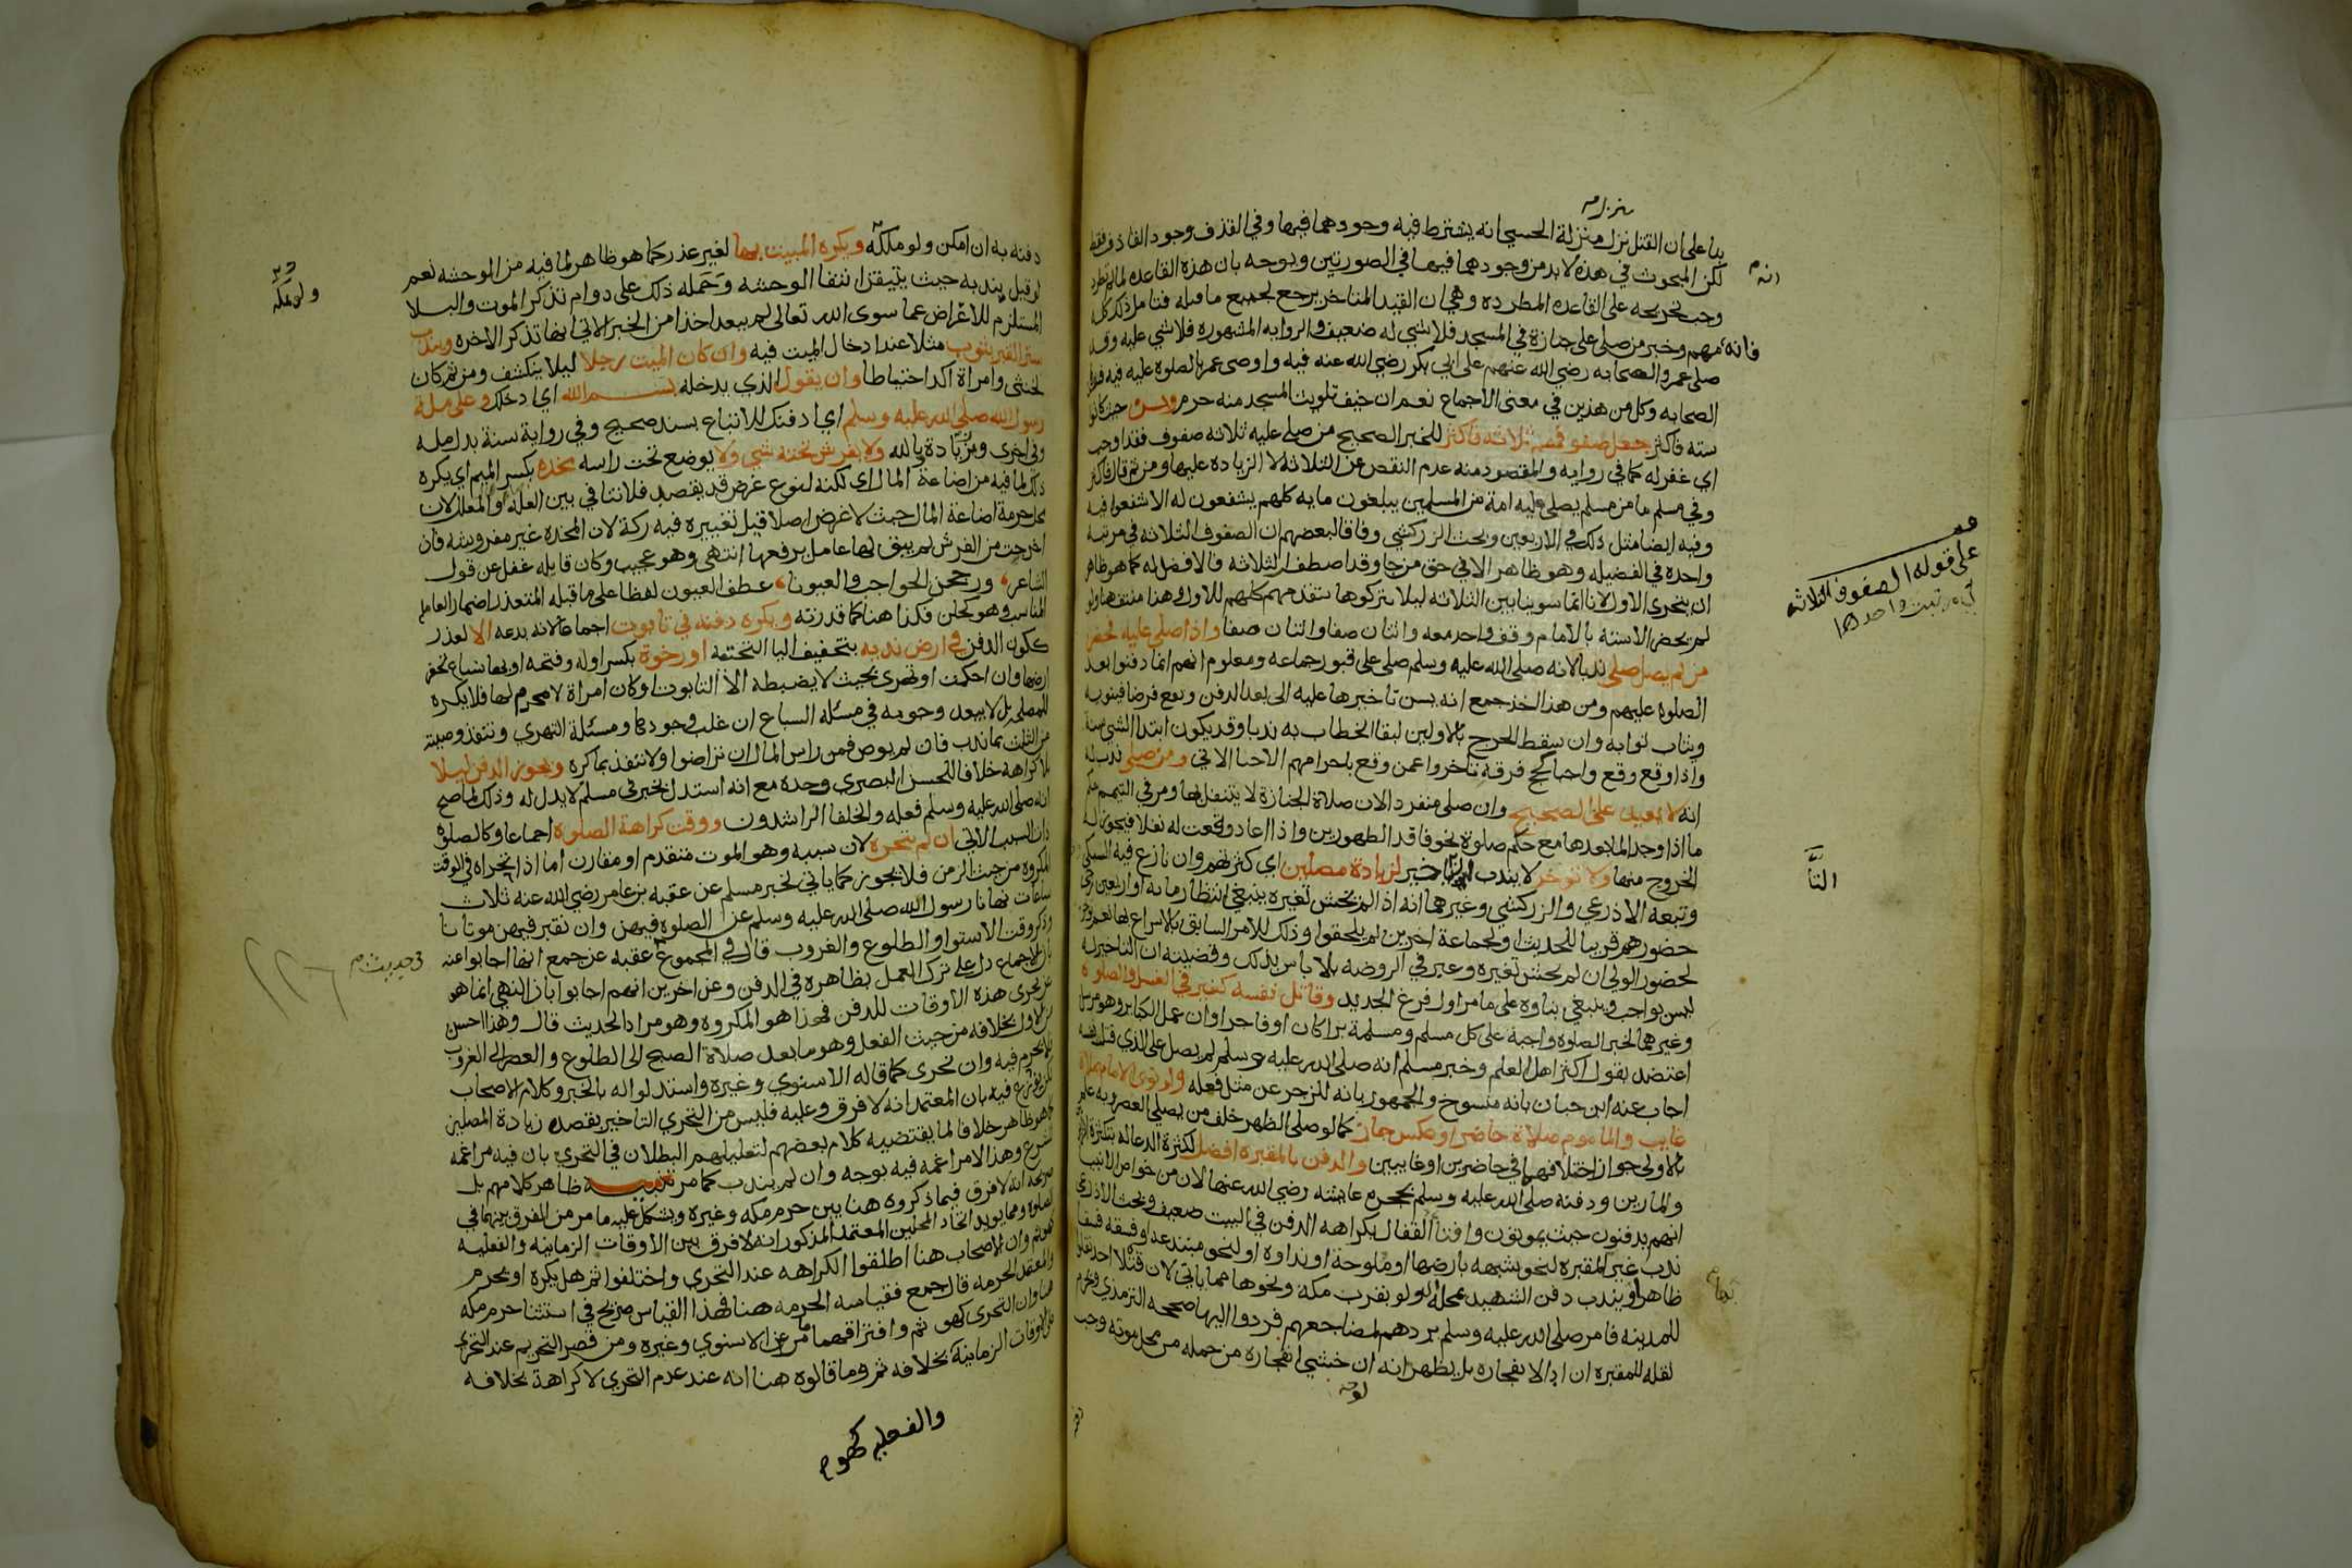 بنا على ان القتل نزل منزلة الحسي انه يشترط فيه وجودهما فيها وفي القذف وجود القاذف فقط
لكن المبحوث في هذه لابد من وجودهما فيها في الصورتين ويوجه بان هذه القاعده لما لم تطرد
وجب تخريجه على القاعده المطرده وهي ان القيد المتاخر يرجع لجميع ما قبله فتامل ذلك كله
فانه مهم وخبر من صلى على جنازة في المسجد فلا شي له ضعيف والروايه المشهوره فلا شي عليه وقد
صلى عمر والصحابه رضي الله عنهم على ابي بكر رضي الله عنه فيه واوصى عمر بالصلوه عليه فيه
الصحابه وكل من هذين في معنى الاجماع نعم ان خيف تلويث المسجد منه حرم ويسن حيث كانوا
سته فاكثر جعل صفوفهم ثلاثة فاكثر للخبر الصحيح من صلى عليه ثلاثه صفوف فقد اوجب
اي غفر له كما في روايه والمقصود منه عدم النقص عن الثلاثه لا الزياده عليها ومن ثم قال فاكثر
وفي مسلم ما من مسلم يصلي عليه امة من المسلمين يبلغون مايه كلهم يشفعون له الا شفعوا فيه
وفيه ايضا مثل ذلك في الاربعين وبحث الزركشي وفاقا لبعضهم ان الصفوف الثلاثه في مرتبه
واحده في الفضيله وهو ظاهر الا في حق من جا وقد اصطف الثلاثه فالافضل له كما هو ظاهر
ان يتحرى الاول لانا انما سوينا بين الثلاثه ليلا يتركوها بتقدمهم كلهم للاول وهذا منتف هنا ولو
لم يحضر الا سته بالامام وقف واحد معه واثنان صفا واثنان صفا واذا صلي عليه فحضر
من لم يصل صلى ندبا لانه صلى الله عليه وسلم صلى على قبور جماعه ومعلوم انهم انما دفنوا بعد
الصلوه عليهم ومن هذا اخذ جمع انه يسن تاخيرها عليه الى بعد الدفن ويقع فرضا فينويه
ويثاب ثوابه وان سقط الحرج بالاولين لبقا الخطاب به ندبا وقد يكون ابتدا الشي سنة
واذا وقع وقع واجبا كحج فرقه تاخروا عمن وقع باحرامهم الاحيا الاتي ومن صلى ندب له
انه لا يعيد على الصحيح وان صلى منفرد الان صلاة الجنازة لا يتنفل بها ومر في التيمم حكم
ما اذا وجد الما بعدها مع حكم صلوة نحو فاقد الطهورين واذا اعاد وقعت له نفلا فيجوز له
الخروج منها ولا تؤخر لا يندب التاخير لزيادة مصلين اي كثرتهم وان نازع فيه السبكي
وتبعه الاذرعي والزركشي وغيرهما انه اذا لم يخش تغيره ينبغي انتظار مايه او اربعين رجي
حضورهم قريبا للحديث ولجماعة اخرين لم يلحقوا وذلك للامر السابق بالاسراع بها نعم
لحضور الولي ان لم يخش تغيره وعبر في الروضه بلا باس بذلك وقضيته ان التاخير له
ليس بواجب وينبغي بناوه على ما مر اول فرع الجديد وقاتل نفسه كغيره في الغسل والصلوة
وغيرهما لخبر الصلوه واجبة على كل مسلم ومسلمة برا كان او فاجرا وان عمل الكبائر وهو مرسل
اعتضد بقول اكثر اهل العلم وخبر مسلم انه صلى الله عليه وسلم لم يصل على الذي قتل نفسه
اجاب عنه ابن حبان بانه منسوخ والجمهور بانه للزجر عن مثل فعله ولو نوى الامام صلاة
غايب والماموم صلاة حاضر او عكس جاز كما لو صلى الظهر خلف من يصلي العصر وبه علم
بالاولى جواز اختلافهما في حاضرين او غايبين والدفن بالمقبره افضل لكثرة الدعا له بكثرة
والمارين ودفنه صلى الله عليه وسلم بحجرة عايشه رضي الله عنها لان من خواص الانبيا
انهم يدفنون حيث يموتون وافتا القفال بكراهه الدفن في البيت ضعيف وبحث الاذرعي
ندب غير المقبره لنحو شبهه بارضها او ملوحة او نداوه او لنحو مبتدعه او فسقه فيها
ظاهر او يندب دفن الشهيد بمحله ولو بقرب مكه ونحوها مما ياتي لان قتلا احد نقلوا
للمدينه فامر صلى الله عليه وسلم بردهم لمضاجعهم فردوا اليها صححه الترمذي
نقله للمقبره ان ادا لا نفجاره بل يظهر انه ان خشي انفجاره من حمله من محل موته وجب
على قوله الصفوف الثلاثه
التا
دفنه به ان امكن ولو ملكه ويكره المبيت بها لغير عذر كما هو ظاهر لما فيه من الوحشه نعم
لو قيل بندبه حيث يتيقن انتفا الوحشه وحمله ذلك على دوام تذكر الموت والبلا
المستلزم للاعراض عما سوى الله تعالى لم يبعد اخذا من الخبر الاتي انها تذكر الاخره ويندب
ستر القبر بثوب مثلا عند ادخال الميت فيه وان كان الميت رجلا ليلا ينكشف ومن ثم كان
لخنثى وامراة اكد احتياطا وان يقول الذي يدخله بسم الله اي ادخلك وعلى ملة
رسول الله صلى الله عليه وسلم اي ادفنك للاتباع بسند صحيح وفي رواية سنة بدل مله
وفي اخرى وزيادة بالله ولا يفرش تحته شي ولا يوضع تحت راسه مخده بكسر الميم اي يكره
ذلك لما فيه من اضاعة المال اي لكنه لنوع غرض قد يقصد فلا تنافي بين العلة والمعلل لان
محل حرمة اضاعة المال حيث لا غرض اصلا قيل تغييره فيه ركة لان المخدة غير مفروشه فان
اخرجت من الفرش لم يبق لها عامل يرفعها انتهى وهو عجيب وكان قايله غفل عن قول
الشاعر ورججن الحواجب والعيونا عطف العيون لفظا على ما قبله المتعذر اضمار العامل
المناسب وهو كحلن فكذا هنا كما قدرته ويكره دفنه في تابوت اجماعا لانه بدعه الا لعذر
ككون الدفن في ارض نديه بتخفيف اليا التحتية او رخوة بكسر اوله وفتحه او بها سباع تحفر
ارضها وان احكمت او تهرى بحيث لا يضبطه الا التابوت او كان امراة لا محرم لها فلا يكره
للمصلحة بل لا يبعد وجوبه في مسئلة السباع ان غلب وجودها ومسئلة التهري وتنفذ وصيته
من الثلث بما ندب فان لم يوص فمن راس المال ان تراضوا ولا تنفذ بما كره ويجوز الدفن ليلا
بلا كراهة خلافا للحسن البصري وحده مع انه استدل بخبر في مسلم لا يدل له وذلك لما صح
انه صلى الله عليه وسلم فعله والخلفا الراشدون ووقت كراهة الصلوة اجماعا وكالصلوه
ذات السبب الاتي ان لم يتحره لان سببه وهو الموت متقدم او مقارن اما اذا تحراه في الوقت
المكروه من حيث الزمن فلا يجوز كما ياتي لخبر مسلم عن عقبه بن عامر رضي الله عنه ثلاث
ساعات نهانا رسول الله صلى الله عليه وسلم عن الصلوه فيهن وان نقبر فيهن موتانا
وذكر وقت الاستوا والطلوع والغروب قال في المجموع عقبه عن جمع انها اجابوا عنه
بان الاجماع دل على ترك العمل بظاهره في الدفن وعن اخرين انهم اجابوا بان النهي انما هو
عن تحرى هذه الاوقات للدفن فهذا هو المكروه وهو مراد الحديث قال وهذا احسن
من الاول بخلافه من حيث الفعل وهو ما بعد صلاة الصبح الى الطلوع والعصر الى الغروب
فلا يحرم فيه وان تحرى كما قاله الاسنوي وغيره واستدلوا له بالخبر وكلام الاصحاب
لكن نوزع فيه بان المعتمد انه لا فرق وعليه فليس من التحري التاخير بقصد زيادة المصلين
كما هو ظاهر خلافا لما يقتضيه كلام بعضهم لتعليلهم البطلان في التحري بان فيه مراغمه
للشرع وهذا لا مراغمه فيه بوجه وان لم يندب كما مر تنبيه ظاهر كلامهم بل
صريحه انه لا فرق فيما ذكروه هنا بين حرم مكه وغيره ويشكل عليه ما مر من الفرق بينهما في
الصلوه ومما يويد اتحاد المحلين المعتمد المذكور انه لا فرق بين الاوقات الزمانيه والفعليه
كهو ثم وان الاصحاب هنا اطلقوا الكراهه عند التحري واختلفوا ثم هل يكره او يحرم
والمعتمد الحرمه قال جمع فقياسه الحرمه هنا فهذا القياس صريح في استثنا حرم مكه
هنا وان التحرى كهو ثم وافتراقهما مر عن الاسنوي وغيره ومن قصر التحريم عند التحرى
على الاوقات الزمانية بخلافه ثم وما قالوه هنا انه عند عدم التحري لا كراهة بخلافه
والفعليه كهو